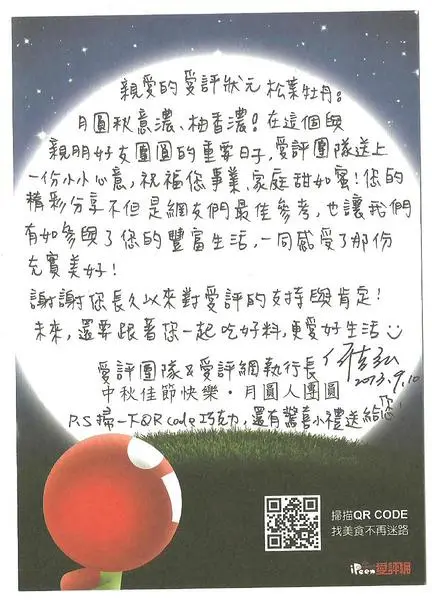 親愛的愛評狀元 松葉牡丹：
月圓秋意濃、柚香濃！在這個與
親朋好友團圓的重要日子，愛評團隊送上
一份小小心意，祝福您事業、家庭甜如蜜！您的
精彩分享不但是網友們最佳參考，也讓我們
有如參與了您的豐富生活，一同感受了那份
充實美好！
謝謝您長久以來對愛評的支持與肯定！
未來，還要跟著您一起吃好料，更愛好生活
愛評團隊&愛評網執行長
2013.9.10
中秋佳節快樂‧月圓人團圓
P.S 掃一下QR code巧克力，還有驚喜小禮送給您！
掃描QR CODE
找美食不再迷路
iPeen 愛評網